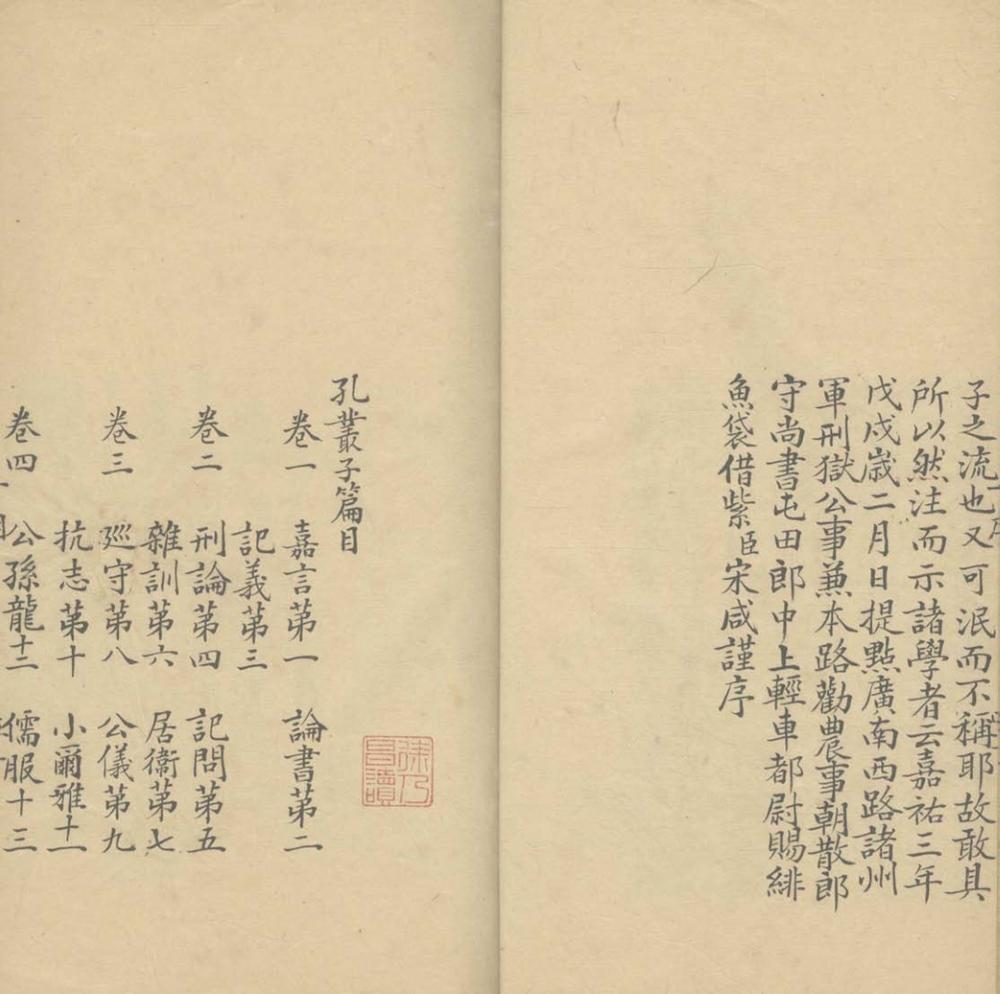 子之流也又可泯而不稱耶故敢具
所以然注而示諸學者云嘉祐三年
戊戌歲二月日提點廣南西路諸州
軍刑獄公事兼本路勸農事朝散郎
守尚書屯田郎中上輕車都尉賜緋
魚袋借紫臣宋咸謹序
孔叢子篇目
卷一 嘉言第一 論書第二
記義第三
卷二 刑論第四 記問第五
雜訓第六 居衞第七
卷三 廵守第八 公儀第九
抗志第十 小爾雅十一
卷四 公孫龍十二 儒服十三
徐乃
昌讀